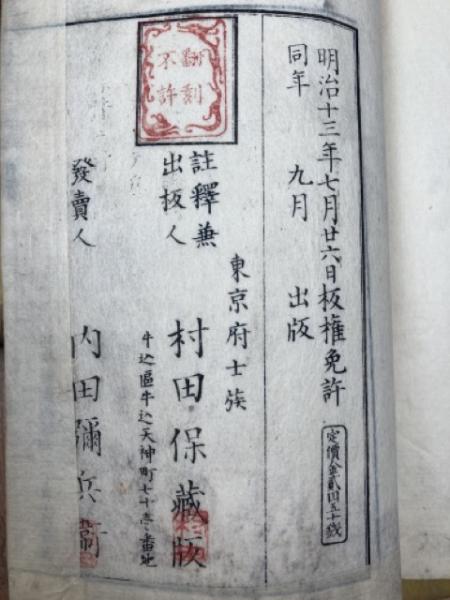 明治十三年七月廿六日板權免許
同年 九月 出版
定價金貳円五十錢
飜刻
不許
東京府士族
註釋兼
出板人
村田保藏版
牛込區牛込天神町七十壱番地
發賣人
内田彌兵衞